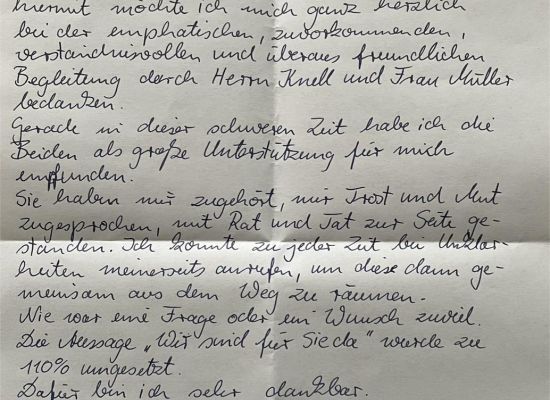 hiermit möchte ich mich ganz herzlich
bei der emphatischen, zuvorkommenden,
verständnisvollen und überaus freundlichen
Begleitung durch Herrn Knell und Frau Müller
bedanken.
Gerade in dieser schweren Zeit habe ich die
Beiden als große Unterstützung für mich
empfunden.
Sie haben mir zugehört, mir Trost und Mut
zugesprochen, mit Rat und Tat zur Seite ge-
standen. Ich konnte zu jeder Zeit bei Unklar-
heiten meinerseits anrufen, um diese dann ge-
meinsam aus dem Weg zu räumen.
Nie war eine Frage oder ein Wunsch zuviel.
Die Aussage „Wir sind für Sie da" wurde zu
110% umgesetzt.
Dafür bin ich sehr dankbar.